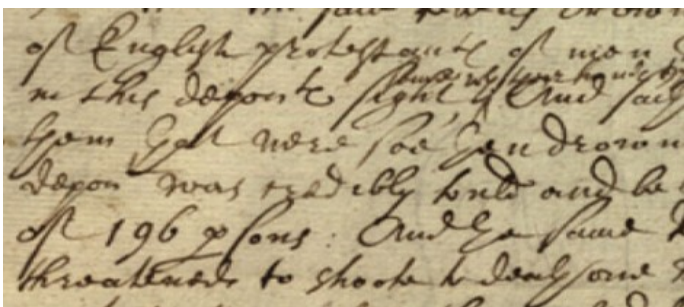 of English protestants of men
in this deponts sight And
them that were soe then drown
depon was credibly tould and be
of 196 psons: And he same
threatened to shoote to death some